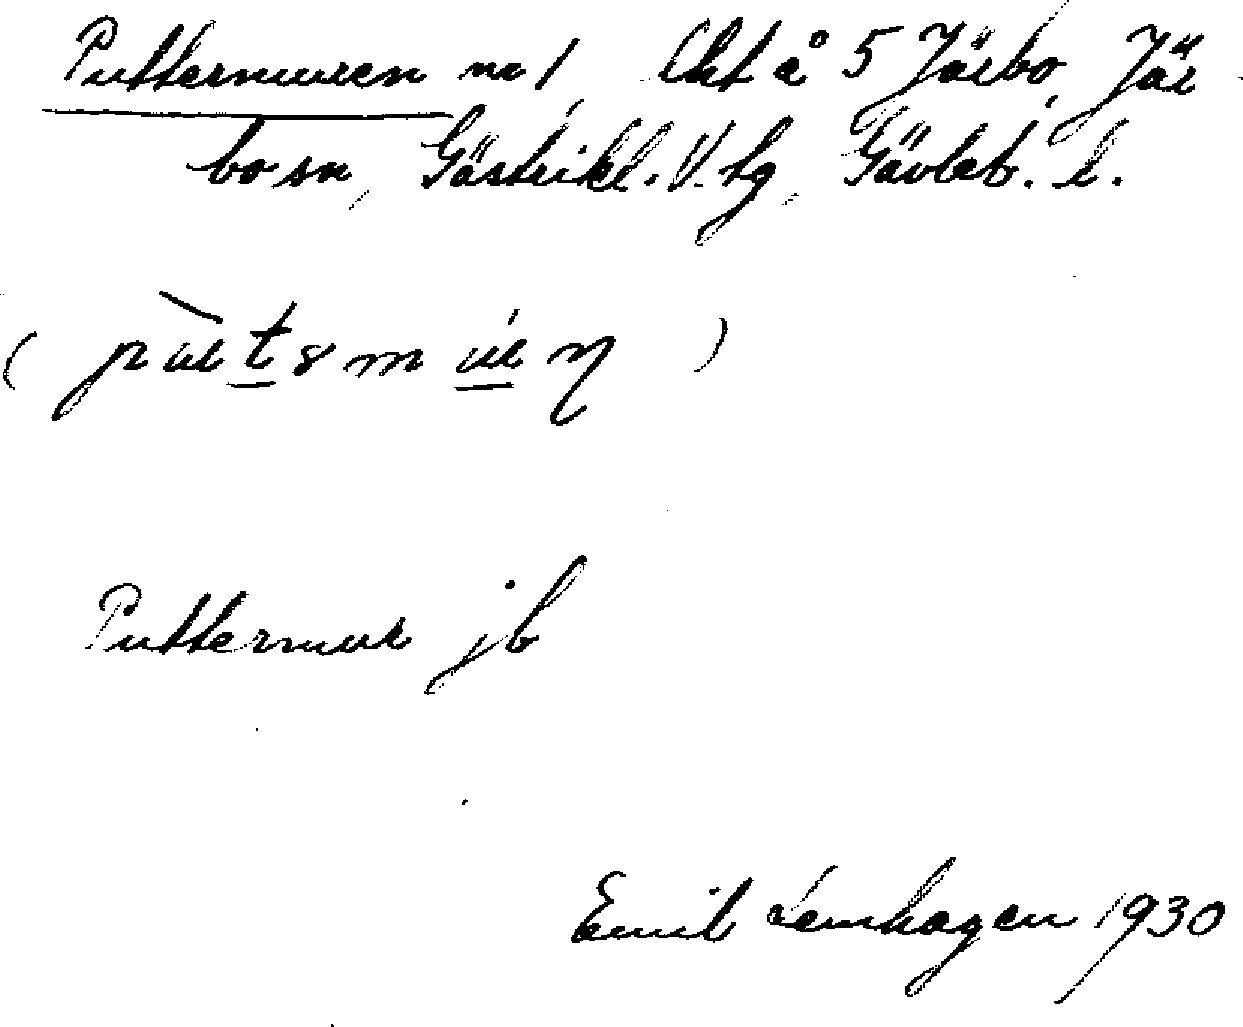 Puttermuren nr 1, Cht å 5 Järbo, Jär
bo sn, Gästrikl. V. tg, Gävleb. l.
( pùtərmúɳ )
Puttermur jb
Emil Lemhagen 1930